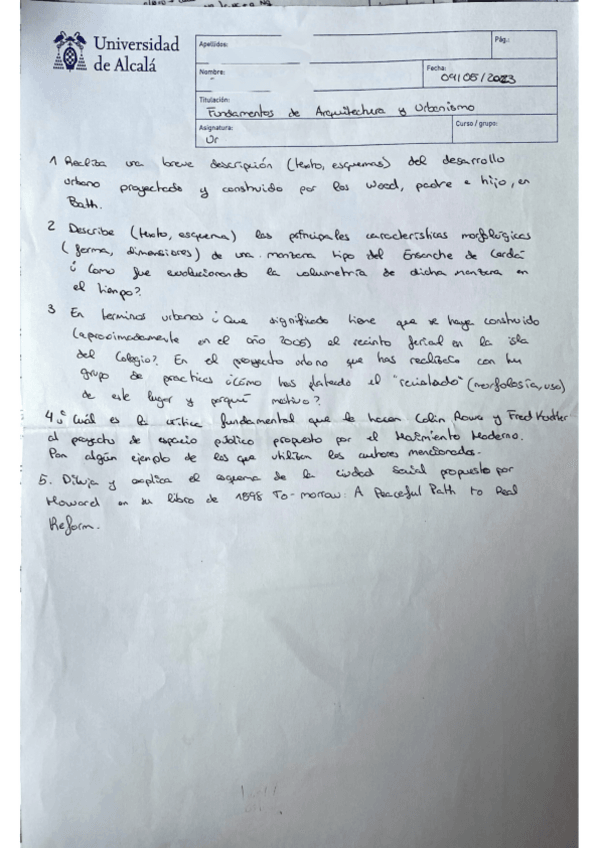 Universidad
de Alcalá
Apellidos:
Pág.:
Nombre:
Fecha:
09/05/2023
Titulación:
Fundamentos de Arquitectura y Urbanismo
Asignatura:
Ur
Curso / grupo:
1 Realiza una breve descripción (texto, esquemas) del desarrollo
urbano proyectado y construido por los Wood, padre e hijo, en
Bath.
2 Describe (texto, esquema) las principales características morfológicas
(forma, dimensiones) de una manzana tipo del Ensanche de Cerdá
¿Como fue evolucionando la volumetría de dicha manzana en
el tiempo?
3 En terminos urbanos ¿Que significado tiene que se haya construido
(aproximadamente en el año 2005) el recinto ferial en la isla
del Colegio? En el proyecto urbano que has realizado con tu
grupo de practicas ¿cómo has planteado el "reciclado" (morfología, uso)
de este lugar y porqué motivo?
4 ¿Cuál es la crítica fundamental que le hacen Colin Rowe y Fred Koetter
al proyecto de espacio público propuesto por el Movimiento Moderno.
Pon algún ejemplo de los que utilizan los autores mencionados.
5. Dibuja y explica el esquema de la ciudad Social propuesto por
Howard en su libro de 1898 To-morrow: A Peaceful Path to Real
Reform.